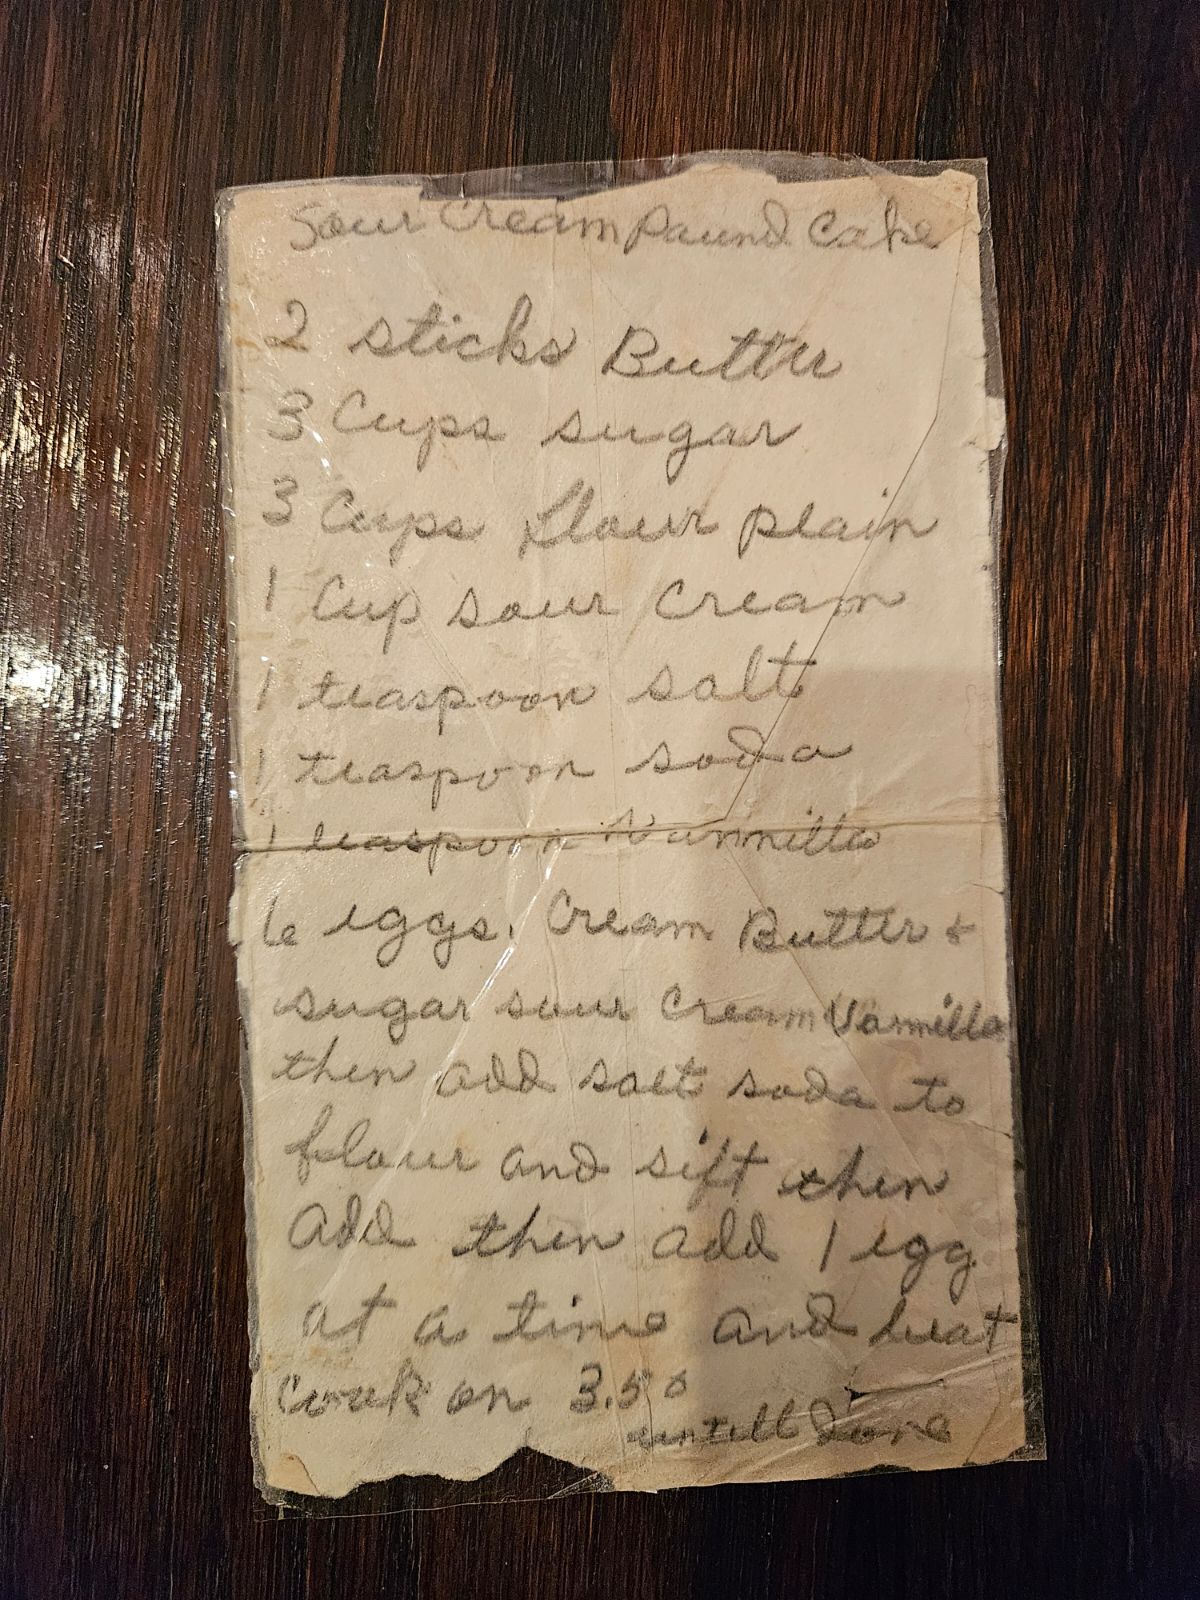 Sour Cream Pound Cake
2 sticks Butter
3 Cups sugar
3 Cups flour plain
1 Cup sour cream
1 teaspoon salt
1 teaspoon soda
1 teaspoon Vannilla
6 eggs. Cream Butter +
sugar sour cream Vannilla
then add salt soda to
flour and sift then
add then add 1 egg
at a time and beat
Cook on 3.50
untill done